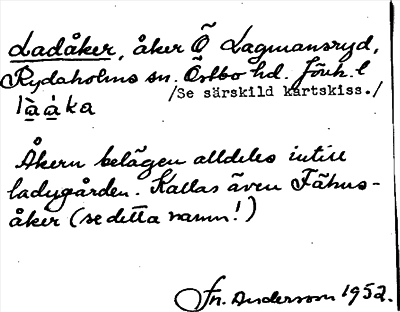 Ladåker, åker Ö Lagmansryd,
Rydaholms sn. Östbo hd. Jönk. l
/Se särskild kartskiss./
låàka
Åkern belägen alldeles intill
ladugården. Kallas även Fähus-
åker (se detta namn!)
Fr. Anderson 1952.